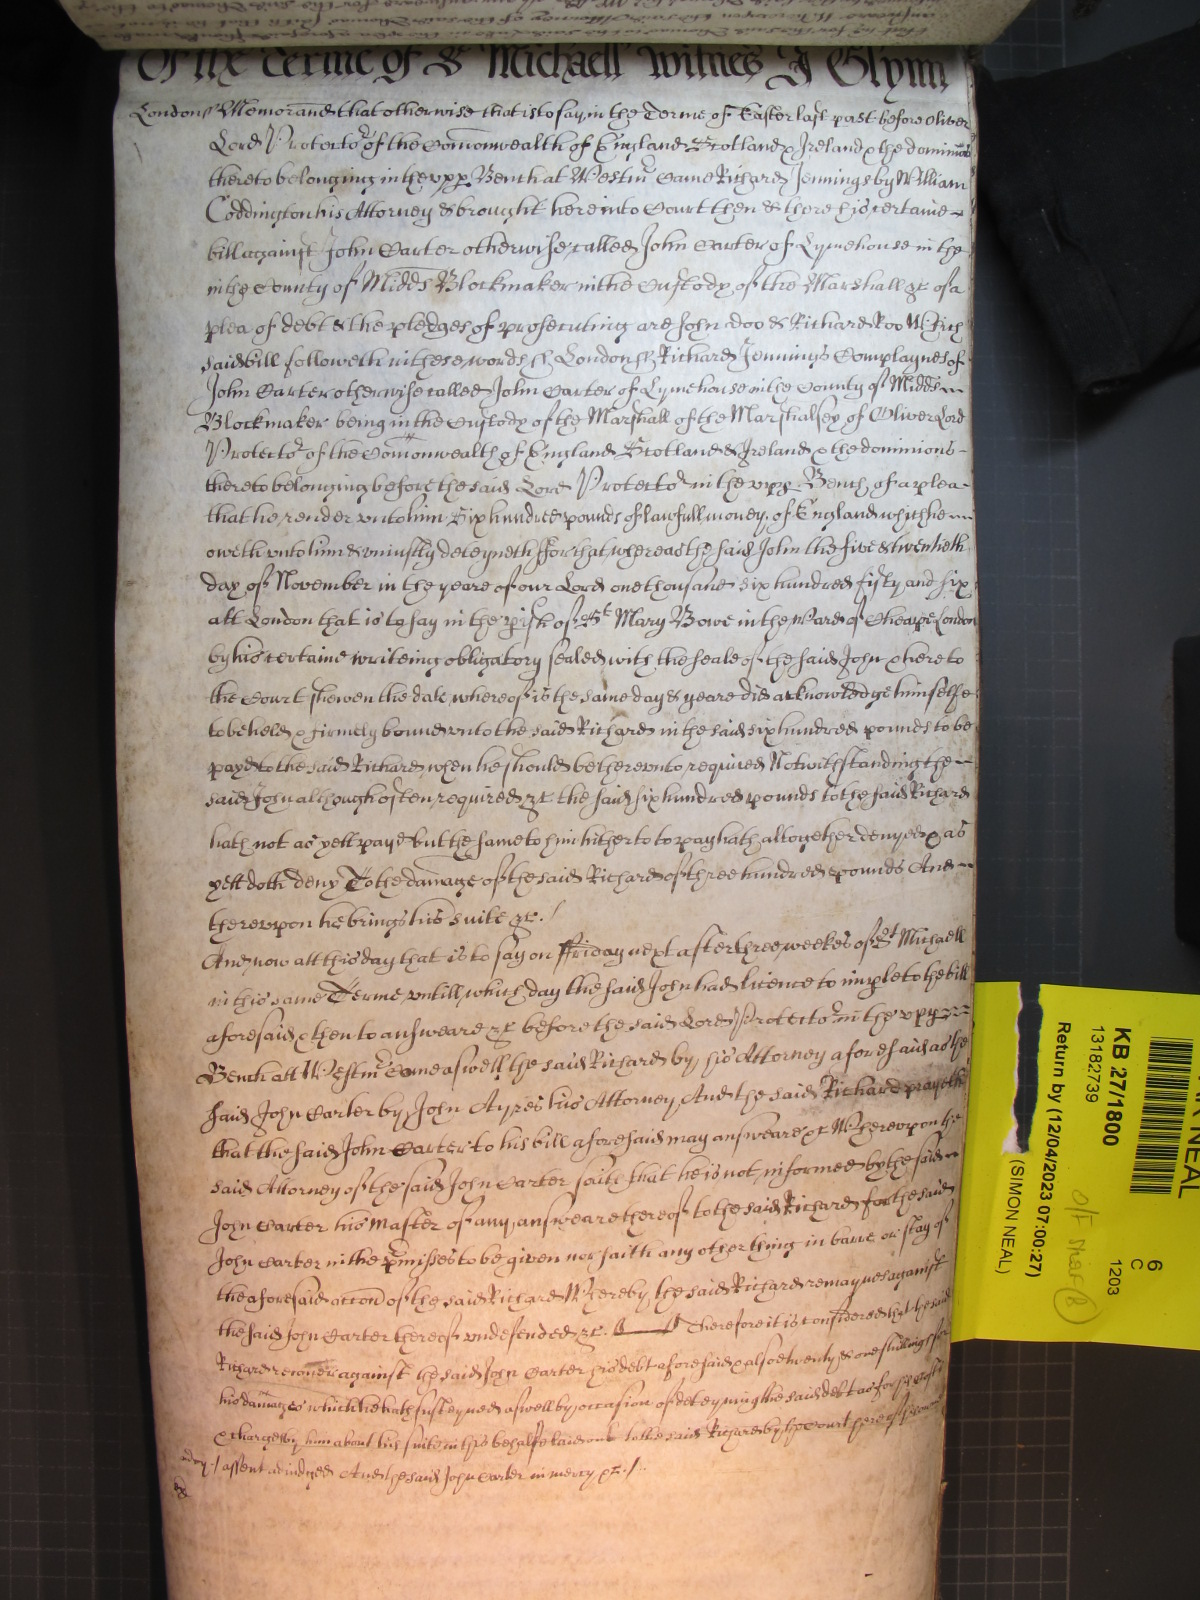 Of the Terme of St Michaell Witnes J Glynn
London ss Memorand that otherwise that is to say in the Terme of Easter last past before Oliver
Lord Protector of the Comonwealth of England Scotland & Ireland & the dominions
thereto belonging in the upp Bench at Westmr Came Richard Jennings by William
Coddington his Attorney & brought here into Court then & there his certaine
bill against John Carter otherwise called John Carter of Lymehouse in the
in the County of Midds Blockmaker in the Custody of the Marshall &c of a
plea of debt & the pledges of prosecuting are John doo & Richard Roo Which
said bill followeth in these words ss London ss Richard Jennings Complaynes of
John Carter otherwise called John Carter of Lymehouse in the County of Midds
Blockmaker being in the Custody of the Marshall of the Marshalsey of Oliver Lord
Protector of the Comonwealth of England Scotland & Ireland & the dominions
thereto belonging before the said Lord Protector in the upp Bench of a plea
that he render unto him Six hundred pounds of lawfull money of England which he
oweth unto him & uniustly deteyneth ffor that whereas the said John the five & twentieth
day of November in the yeare of our Lord one thousand six hundred fifty and six
att London that is to say in the pish of St Mary Bowe in the Ward of Cheape London
by his certaine writeing obligatory sealed with the seale of the said John & here to
the Court shewen the date whereof is the same day & yeare did acknowledge himselfe
to be held & firmely bound unto the said Richard in the said six hundred pounds to be
payd to the said Richard when he should be thereunto required Notwithstanding the
said John although often required &c the said six hundred pounds to the said Richard
hath not as yett payd but the same to him hitherto to pay hath altogether denyed & as
yett doth deny To the damage of the said Richard of three hundred pounds And
thereupon he brings his suite &c.
And now att this day that is to say on ffriday next after three weekes of St Michaell
in this same Terme untill which day the said John had licence to imple to the bill
aforesaid & then to answeare &c before the said Lord Protector in the upp
Bench att Westmr Come aswell the said Richard by his Attorney aforesaid as the
said John Carter by John Ayres his Attorney And the said Richard prayeth
that the said John Carter to his bill aforesaid may answeare &c Whereupon the
said Attorney of the said John Carter saith that he is not informed by the said
John Carter his Master of any answeare thereof to the said Richard for the said
John Carter in the pmisses to be given nor saith any other thing in barre or stay of
the aforesaid accon of the said Richard Whereby the said Richard remaynes against
the said John Carter thereof undefended &c. Therefore it is considered that the said
Richard recover against the said John Carter his debt aforesaid & alsoe twenty & one shillings for
his damages which he hath susteyned aswell by occasion of deteyning the said debt as for his costs
& charges by him about his suite in this behalfe laid out to the said Richard by the Court here of his
assent adiudged And the said John Carter in mercy &c.
KB 27/1800
13182739
Return by (12/04/2023 07:00:27)
(SIMON NEAL)
6
C
1203